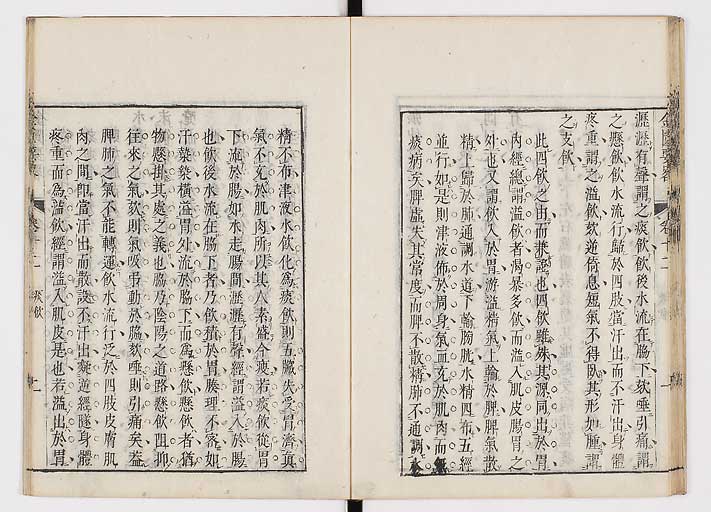 瀝瀝有聲謂之痰飲飲後水流在脇下欬唾引痛謂
之懸飲飲水流行歸於四肢當汗出而不汗出身體
疼重謂之溢飲欬逆倚息短氣不得臥其形如腫謂
之支飲
此四飲之由而兼證也四飲雖殊其源同出於胃
內經總謂溢飲者渴暴多飲而溢入肌皮腸胃之
外也又謂飲入於胃游溢精氣上輸於脾脾氣散
精上歸於肺通調水道下輸膀胱水精四布五經
並行如是則津液佈於周身氣而充於肌肉而無
痰病矣脾虛失其常度而脾不散精肺不通調水
精不布津液水飲化為痰飲則五臟失受胃濟真
氣不充於肌肉所以其人素盛今瘦若痰飲從胃
下流於腸如水走腸間瀝瀝有聲經謂溢入於腸
也飲後水流在脇下者乃飲積於胃腠理不密如
汗漐漐橫溢胃外流於脇下而為懸飲懸飲者猶
物懸掛其處之義也脇乃陰陽之道路懸飲阻抑
往來之氣欬則氣吸吊動於脇欬唾則引痛矣蓋
脾肺之氣不能轉運飲水流行泛於四肢皮膚肌
肉之間即當汗出而散設不汗出凝逆經隧身體
疼重而為溢飲經謂溢入肌皮是也若溢出於胃
卷十二
痰飲
一